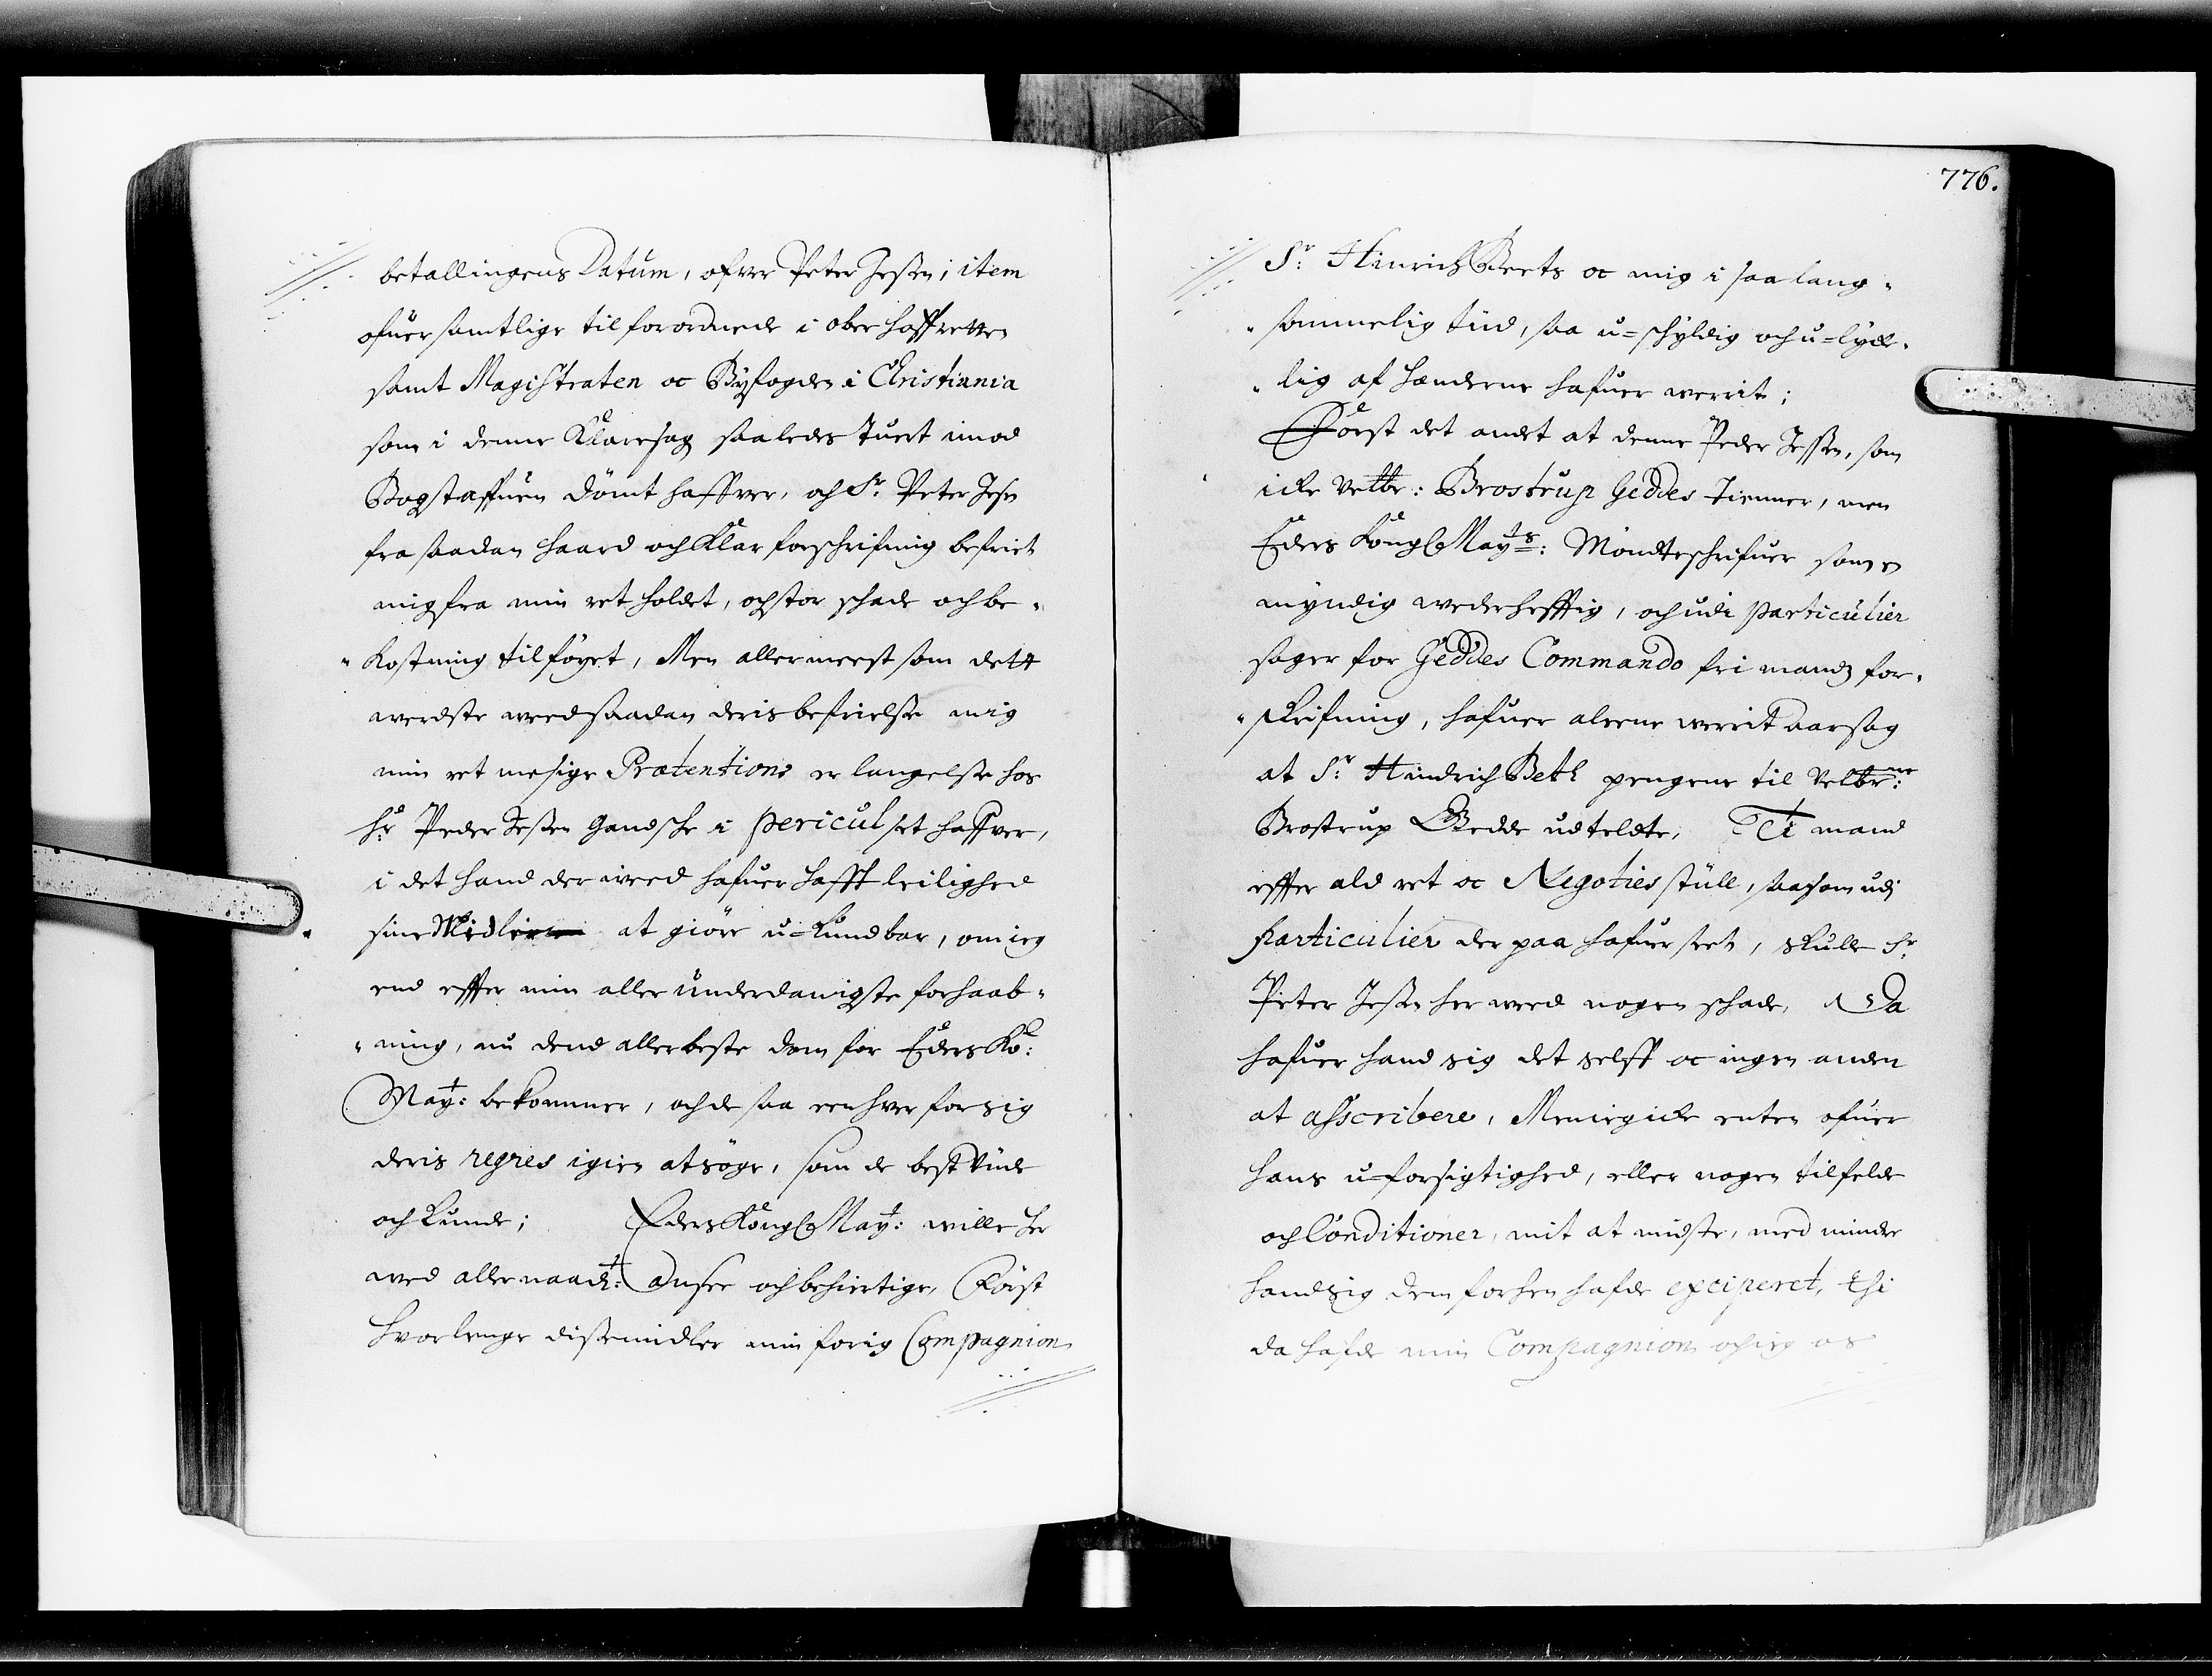 betallingens Datum, ofver Peter Jessen, item
ofuer samtlige tilforordnede i ober hoffretten
samt Magistraten oc Byfogden i Christiania
som i denne Klare sag saaledes tuert imod
Bogstaffuen dömt haffver, och Sr. Peter Jesen
fra saadan haard och Klar forschrifning befriet
mig fra min ret holdet, och stor schade och be-
kostning tilföyet, Men allermeest som dett
werdste weed saadan deris befrielse mig
min ret mesige Prætentions erlangelse hos
hr Peder Jessen gandsche i pericul set haffver,
i det hand der weed hafuer hafft leilighed
sine Midler at giöre u-kundbar, om ieg
end effter min aller underdanigste forhaab-
ning, nu dend allerbeste dom for Eders Ko:
Mayt: bekommer, och de saa een hver for sig
deris regres igien at söge, som de best vide
och kunde; Eders Kongl Mayt: wille her
wed aller naadt: Ansee och behiertige, Först
hvorlenge disse midler min forig Compagnion
776.
Sr: Hinrich Beets oc mig i saa lang-
sommelig tüd, saa u-schyldig och u-lyde-
lig af hænderne hafuer werrit;
Först det andet at denne Peder Jessen, som
icke Velbr: Brostrup Geddes Tienner, men
Eders Kongl Mayts: Möndteschrifuer som en
myndig wederhefftig, och udi particulier
sager for Geddes Commando fri mandz for-
skrifning, hafuer aleene werrit aarsag
at Sr: Hindrich Beth pengene til Velbrne:
Brostrup Gedde udtelte, Ti mand
effter ald ret oc Negoties stüll, saasom udj
particulier der paa hafuer seet, skulle Sr.
Peter Jessen her weed nogen schade, Da
hafuer hand sig det selff oc ingen anden
at asscribere, Men ieg icke enten ofuer
hans u-forsigtighed, eller nogen tilfelde
och Conditioner, mit at midste, med mindre
hand sig dem forhen hafde exciperet, thi
da hafde min Compagnion och ieg os